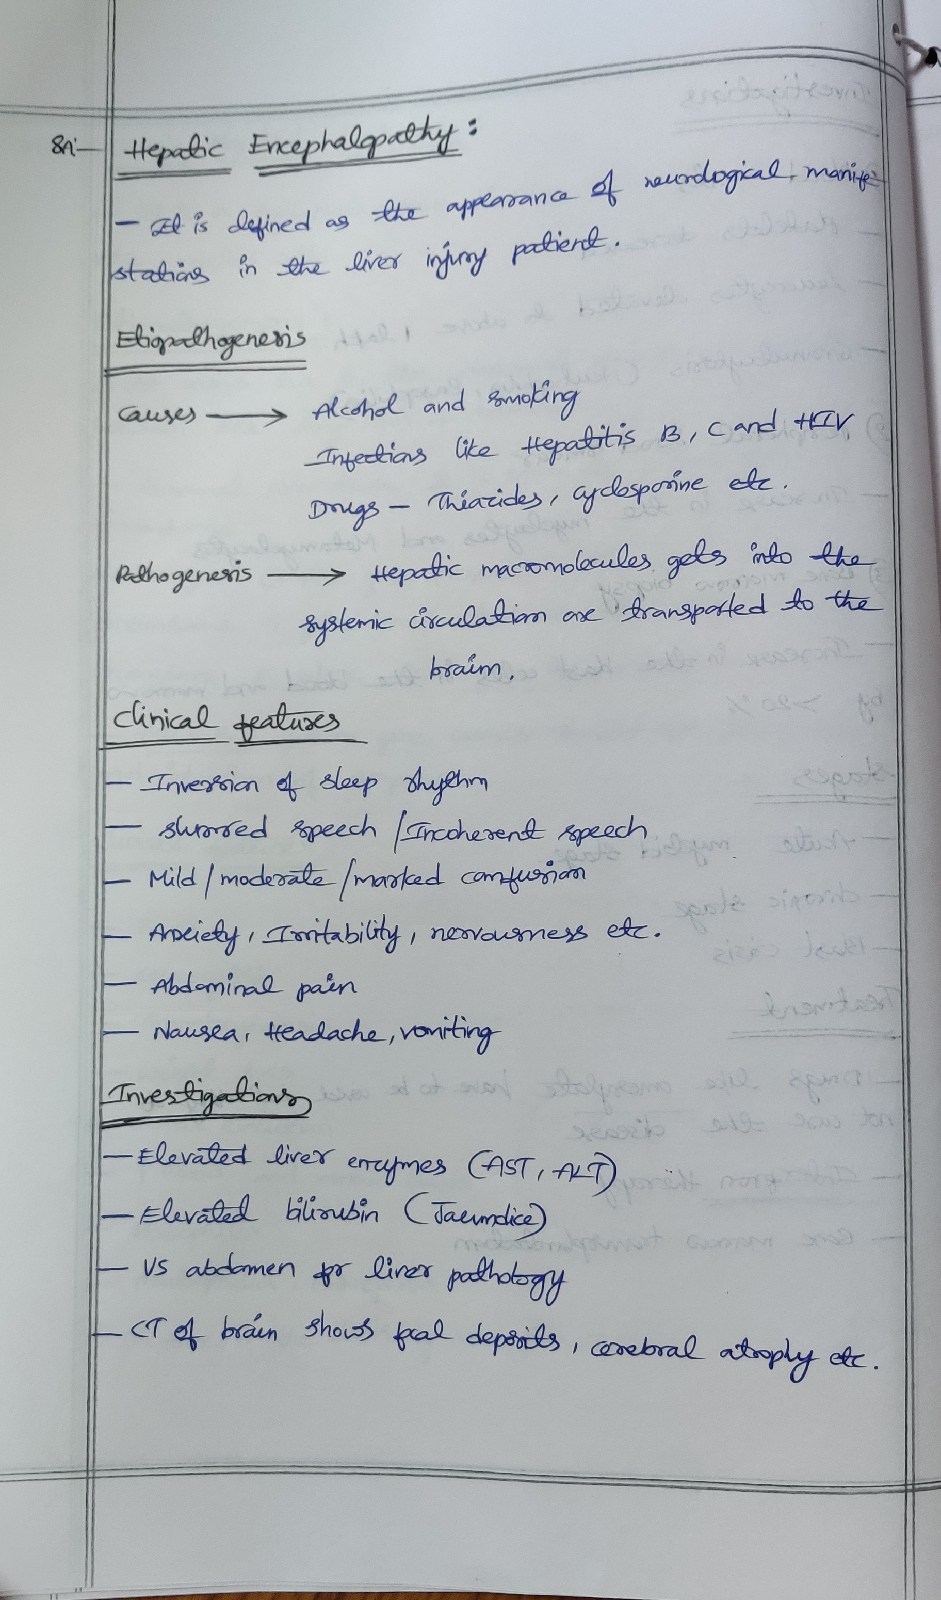 8A:- Hepatic Encephalopathy:
- It is defined as the appearance of neurological manife-
stations in the liver injury patient.
Etiopathogenesis
causes → Alcohol and smoking
Infections like Hepatitis B, C and HIV
Drugs - Thiazides, cyclosporine etc.
Pathogenesis → Hepatic macromolecules gets into the
systemic circulation are transported to the
brain.
Clinical features
- Inversion of sleep rhythm
- slurred speech / Incoherent speech
- Mild / moderate / marked confusion
- Anxiety, Irritability, nervousness etc.
- Abdominal pain
- Nausea, Headache, vomiting
Investigations
- Elevated liver enzymes (AST, ALT)
- Elevated bilirubin (Jaundice)
- US abdomen for liver pathology
- CT of brain shows focal deposits, cerebral atrophy etc.